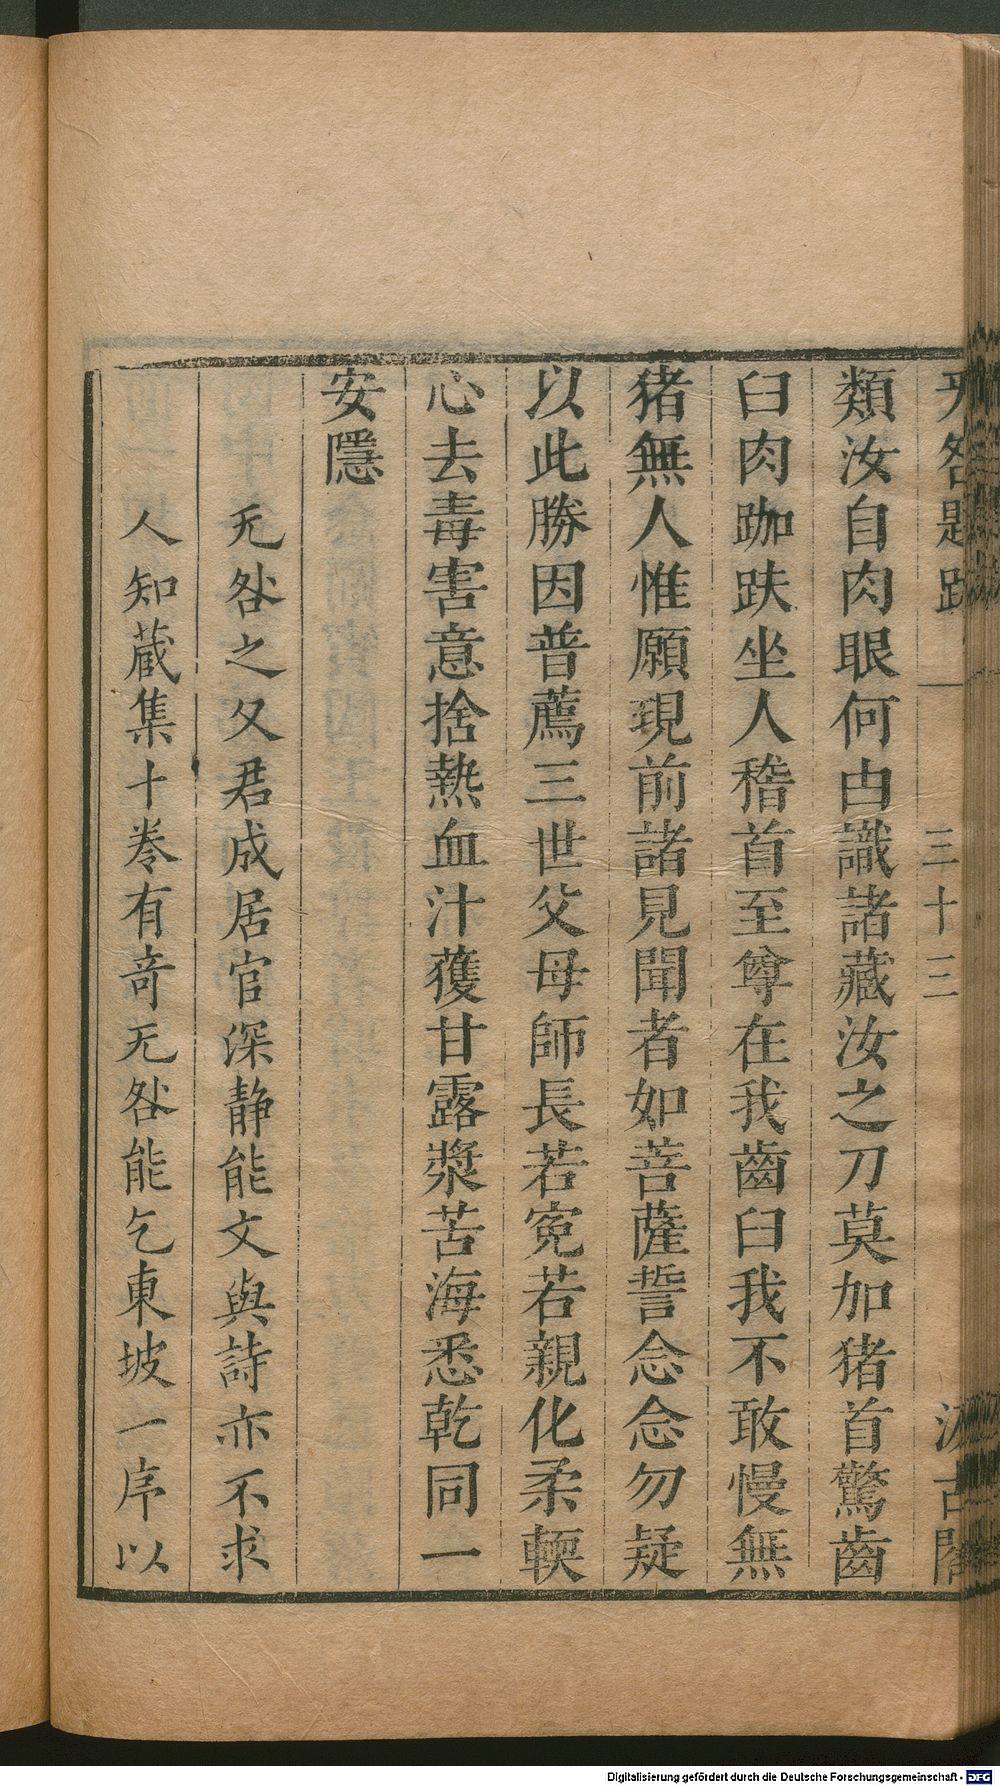 无咎題跋 一 三十三 汲古閣
類汝自肉眼何由識諸藏汝之刀莫加猪首驚齒
臼肉跏趺坐人稽首至尊在我齒臼我不敢慢無
猪無人惟願現前諸見聞者如菩薩誓念念勿疑
以此勝因普薦三世父母師長若寃若親化柔輭
心去毒害意捨熱血汁獲甘露漿苦海悉乾同一
安隱
无咎之父君成居官深靜能文與詩亦不求
人知蔵集十卷有奇无咎能乞東坡一序以
Digitalisierung gefördert durch die Deutsche Forschungsgemeinschaft - DFG